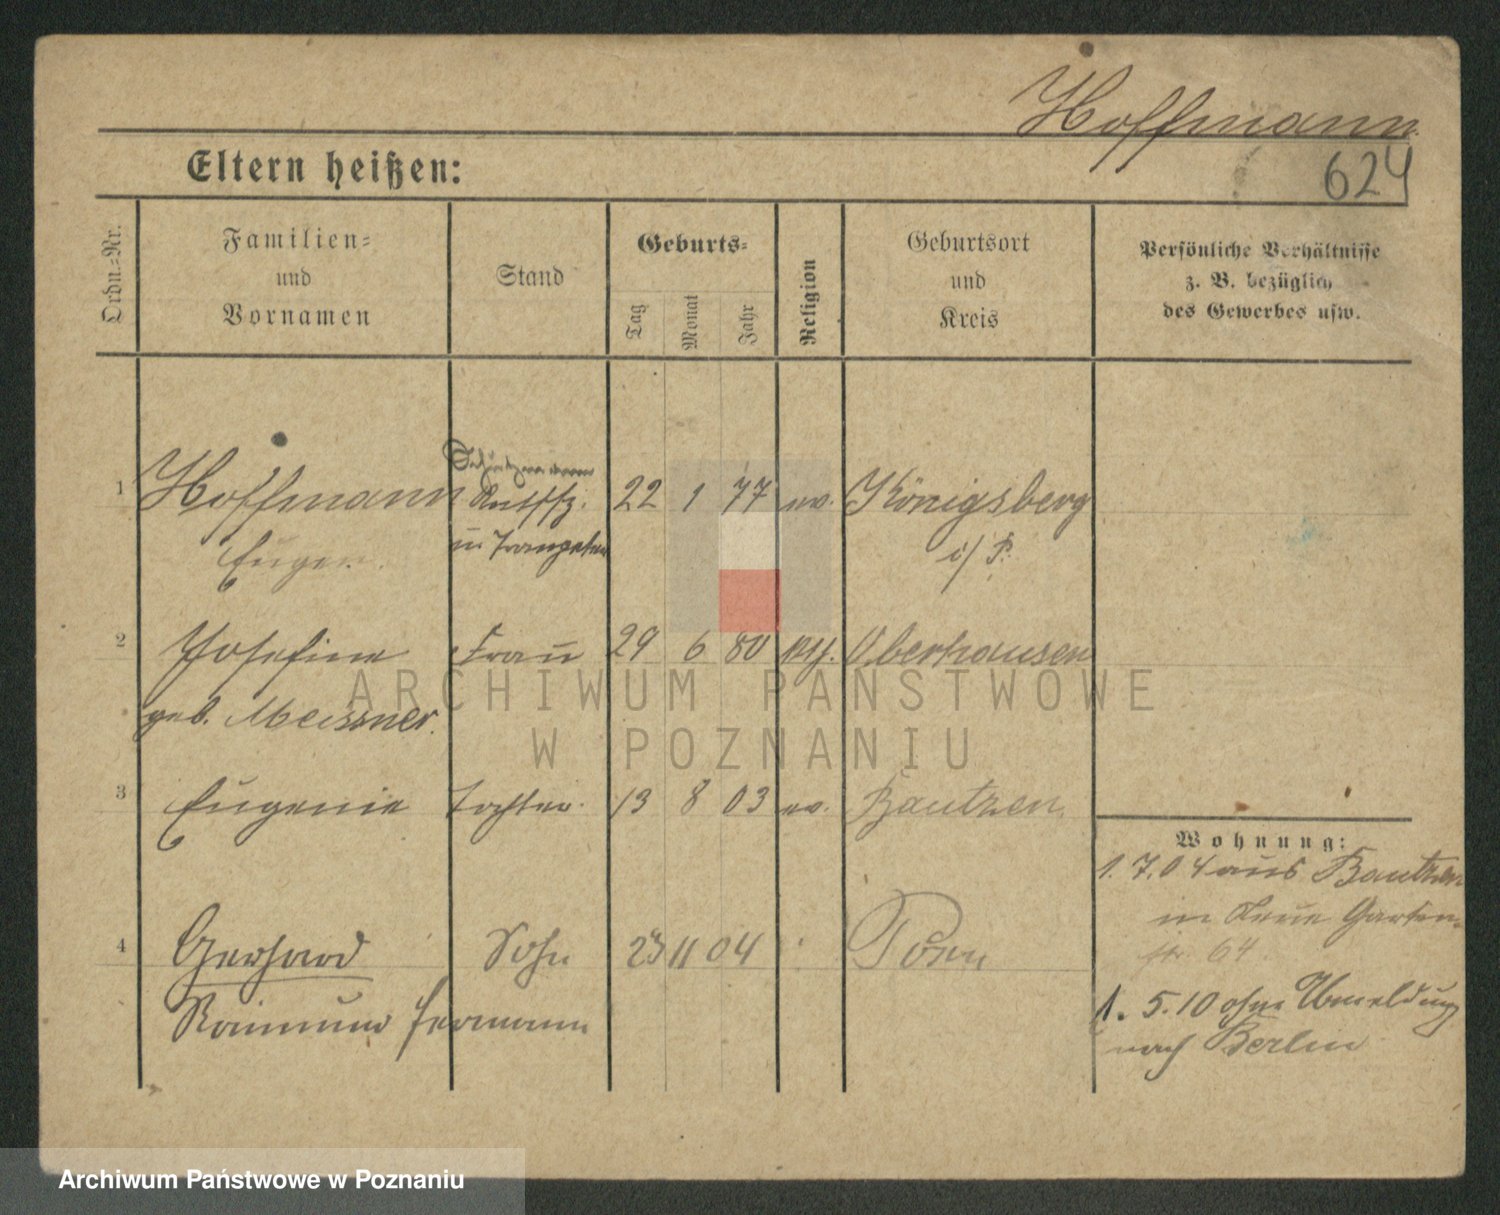 Hoffmann.
624
Eltern heißen:
Ordn.-Nr.
Familien-
und
Vornamen
Stand
Geburts-
Tag
Monat
Jahr
Religion
Geburtsort
und
Kreis
Persönliche Verhältnisse
z. B. bezüglich
des Gewerbes usw.
Schutzmann
1 Hoffmann 22 1 77 ev. Königsberg
Eugen i/P.
2 Josefine Frau 29 6 80 Oberhausen
geb. Meissner.
3 Eugenie Tochter. 13 8 03 ev. Bautzen.
Wohnung:
1.7.04 aus Bautzen
in Neue Garten-
str. 64.
4 Gerhard Sohn 23 11 04 Posen
Raimund Hermann
1. 5.10 ohne Abmeldung
nach Berlin
ARCHIWUM PAŃSTWOWE
W POZNANIU
Archiwum Państwowe w Poznaniu